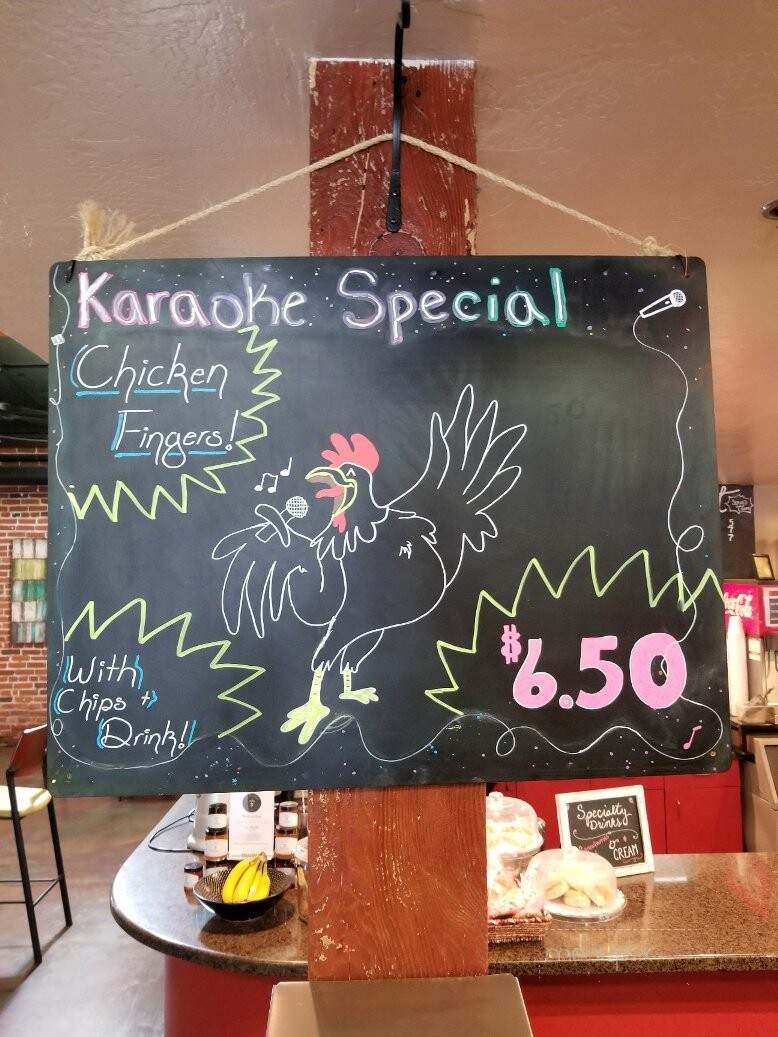 Karaoke Special
Chicken
Fingers!
With
Chips +
Drink!!
$6.50
Coca-Cola
Specialty
Drinks
& CREAM